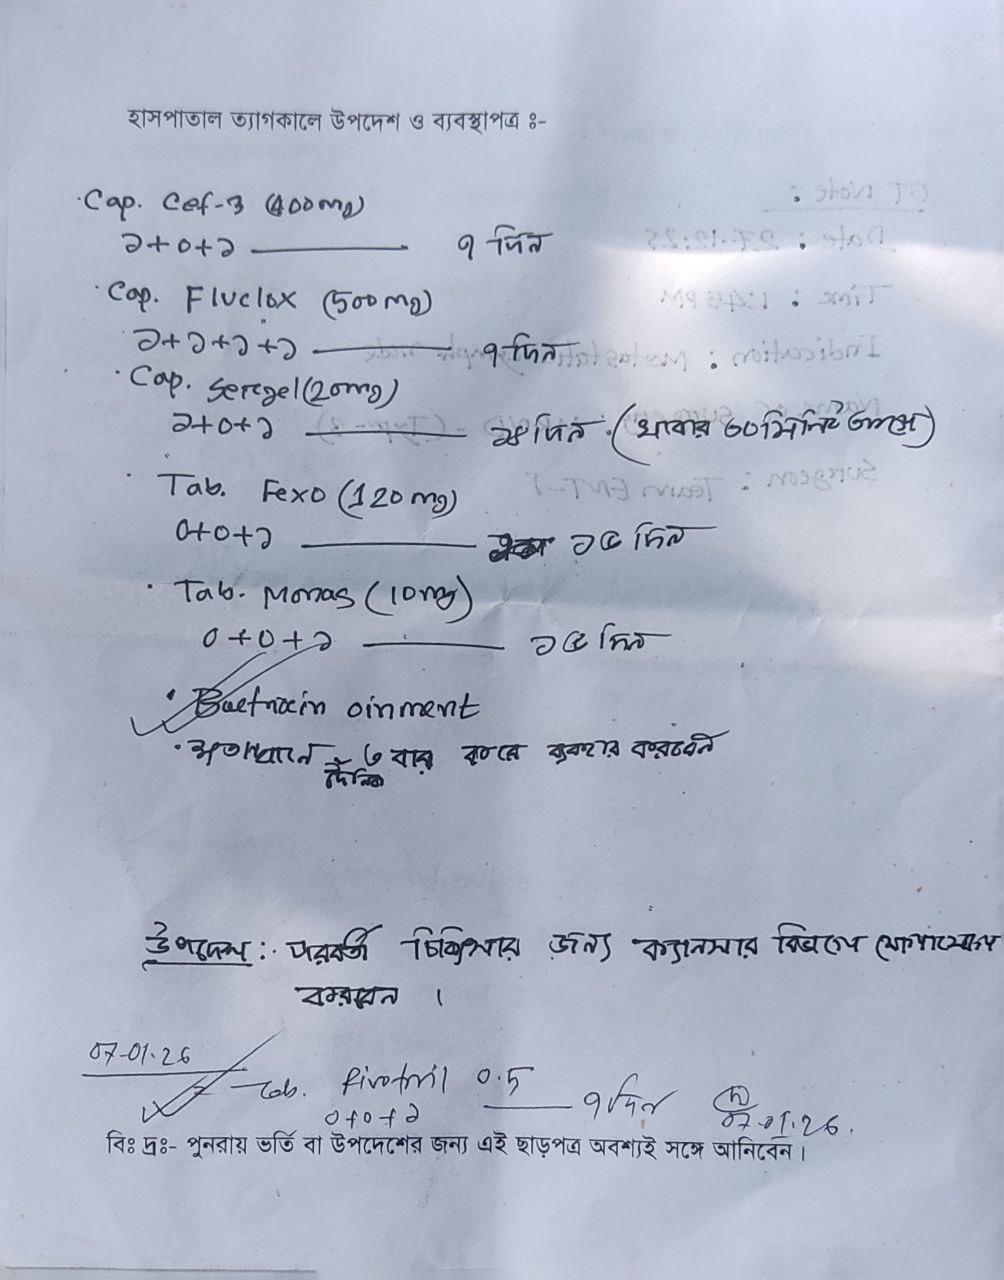 হাসপাতাল ত্যাগকালে উপদেশ ও ব্যবস্থাপত্র ঃ-
Cap. Cef-3 (400mg)
১+০+১ — ৭ দিন
Cap. Fluclox (500mg)
১+১+১+১ — ৭ দিন
Cap. Sergel (20mg)
১+০+১ — ১৪ দিন (খাবার ৩০ মিনিট আগে)
Tab. Fexo (120mg)
০+০+১ — ১৫ দিন
Tab. Monas (10mg)
০+০+১ — ১৫ দিন
Bactrocin oinment
ক্ষতস্থানে দৈনিক ৩ বার করে ব্যবহার করবেন
উপদেশ : পরবর্তী চিকিৎসার জন্য ক্যানসার বিভাগে যোগাযোগ
করবেন ।
07-01-26
Tab. Rivotril 0.5
০+০+১ — ৭ দিন
07-01-26.
বিঃ দ্রঃ- পুনরায় ভর্তি বা উপদেশের জন্য এই ছাড়পত্র অবশ্যই সঙ্গে আনিবেন।